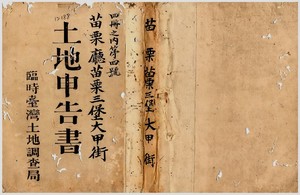 苗栗苗栗三堡大甲街
四冊之內第四號
苗栗廳苗栗三堡大甲街
土地申告書
臨時臺灣土地調查局